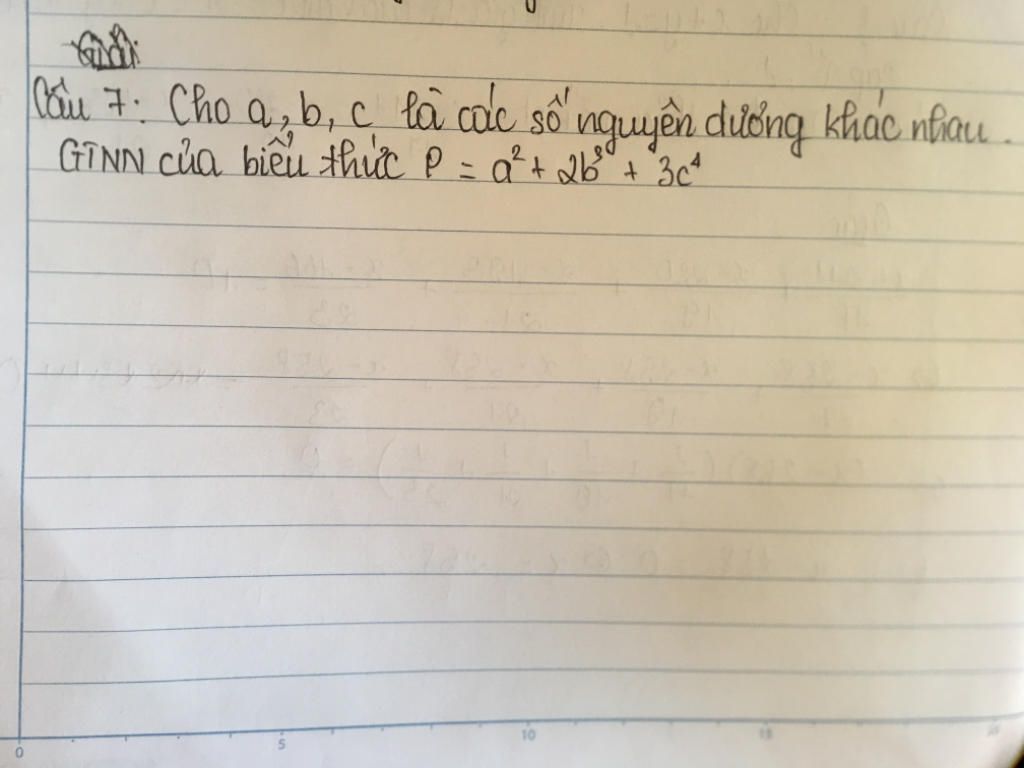 Câu 7: Cho a, b, c là các số nguyên dương khác nhau.
GTNN của biểu thức P = a² + 2b³ + 3c⁴
0 5 10 15